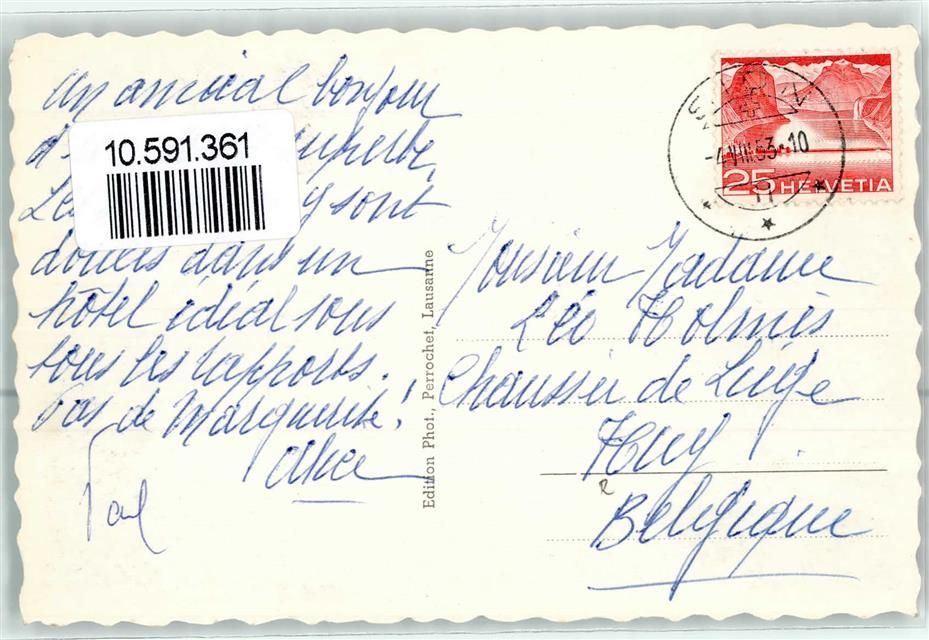 Un amical bonjour
d' superbe.
Les y sont
dans un
hôtel idéal sous
tous les rapports.
Pas de Marguerite!
Alice
Paul
10.591.361
Edition Phot., Perrochet, Lausanne
-4.VIII.53.-10
25 HELVETIA
Monsieur Madame
Léo Holmès
Chaussée de Liège
Huy
Belgique